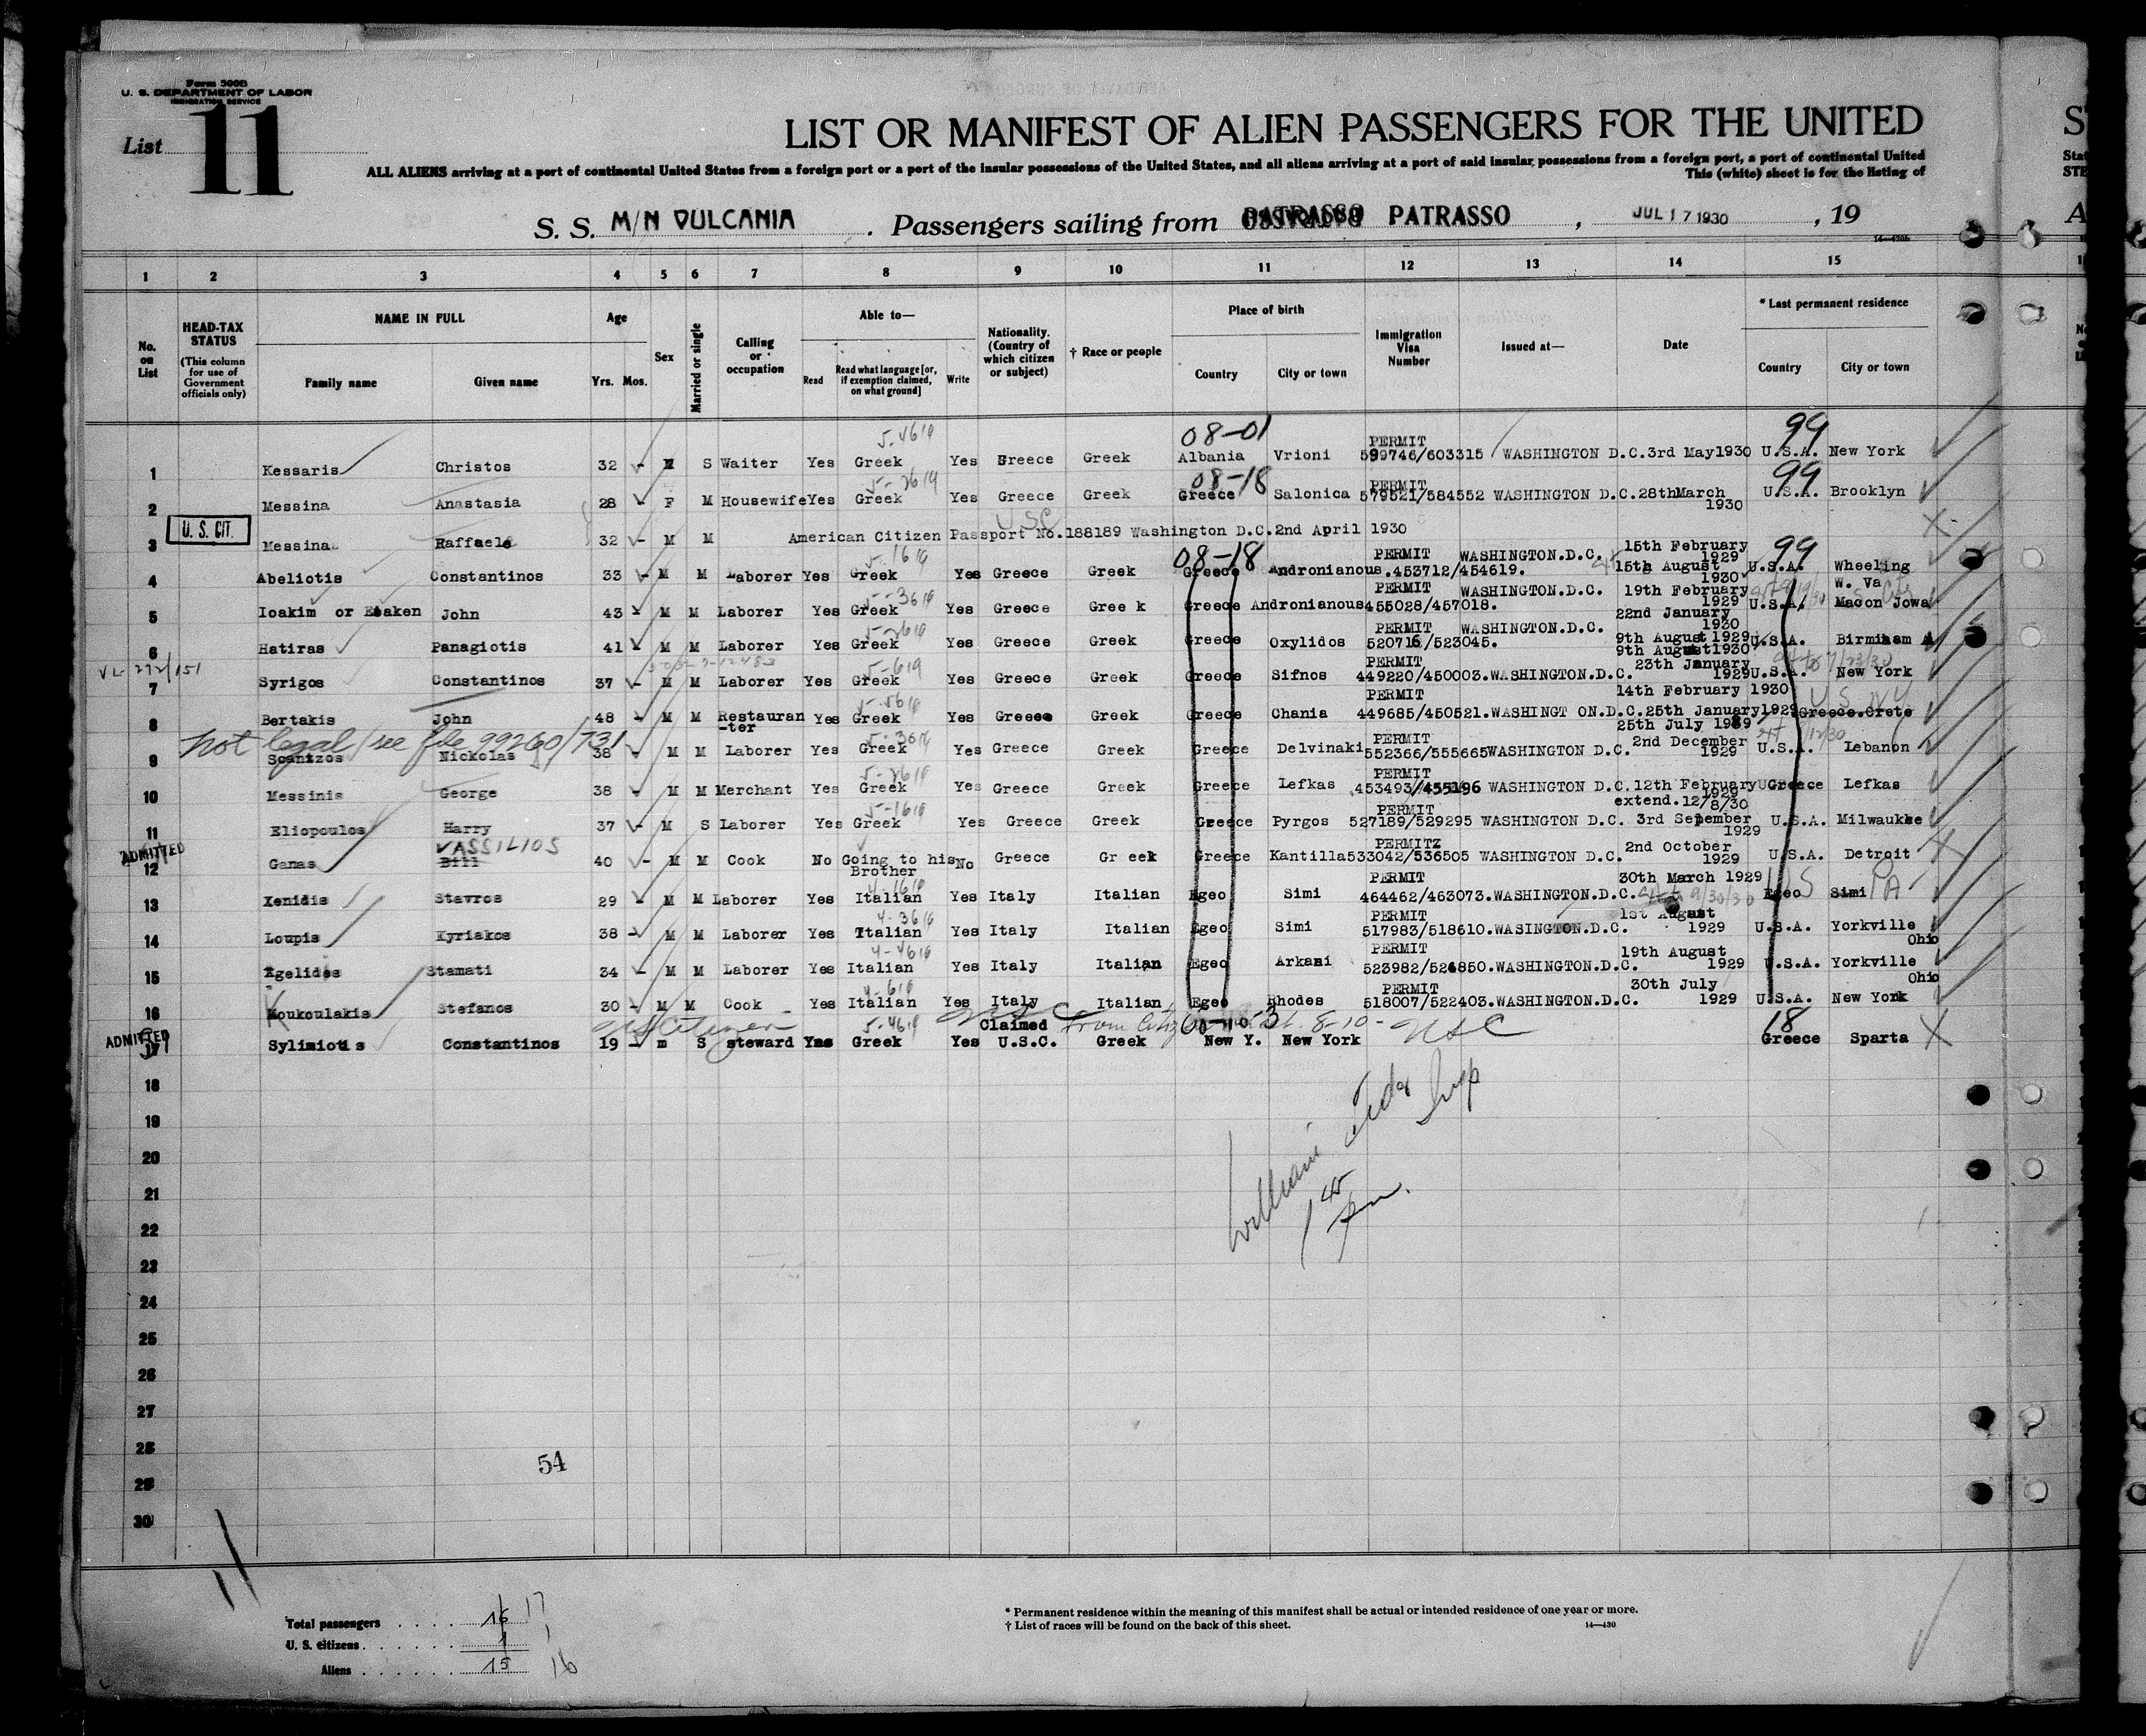 Form 500B
U. S. DEPARTMENT OF LABOR
IMMIGRATION SERVICE
List 11
LIST OR MANIFEST OF ALIEN PASSENGERS FOR THE UNITED
ALL ALIENS arriving at a port of continental United States from a foreign port or a port of the insular possessions of the United States, and all aliens arriving at a port of said insular possessions from a foreign port, a port of continental United
This (white) sheet is for the listing of
S. S. M/N VULCANIA . Passengers sailing from PATRASSO , JUL 17 1930 , 19
14—430b
1 2 3 4 5 6 7 8 9 10 11 12 13 14 15
No. on List
HEAD-TAX STATUS (This column for use of Government officials only)
NAME IN FULL Family name Given name
Age Yrs. Mos.
Sex
Married or single
Calling or occupation
Able to— Read Read what language [or, if exemption claimed, on what ground] Write
Nationality. (Country of which citizen or subject)
† Race or people
Place of birth Country City or town
Immigration Visa Number
Issued at—
Date
* Last permanent residence Country City or town
5-4619 08-01 PERMIT 99
1 Kessaris Christos 32 - M S Waiter Yes Greek Yes Greece Greek Albania Vrioni 599746/603315 WASHINGTON D.C. 3rd May 1930 U.S.A. New York
5-2619 08-18 PERMIT 99
2 Messina Anastasia 28 F M Housewife Yes Greek Yes Greece Greek Greece Salonica 579521/584552 WASHINGTON D.C. 28th March 1930 U.S.A. Brooklyn
U. S. CIT. USC
3 Messina Raffaele 32 - M M American Citizen Passport No. 188189 Washington D.C. 2nd April 1930 X
5-1619 08-18 99
4 Abeliotis Constantinos 33 - M M Laborer Yes Greek Yes Greece Greek Greece Andronianous PERMIT .453712/454619. WASHINGTON.D.C. 15th February 1929 15th August 1930 U.S.A. Wheeling W. Va
5-3619
5 Ioakim or Eoaken John 43 - M M Laborer Yes Greek Yes Greece Gree k Greece Andronianous PERMIT 455028/457018. WASHINGTON.D.C. 19th February 1929 22nd January 1930 U.S.A. Macon Jowa
5-2619
6 Hatiras Panagiotis 41 M M Laborer Yes Greek Yes Greece Greek Greece Oxylidos PERMIT 520716/523045. WASHINGTON.D.C. 9th August 1929 9th August 1930 U.S.A. Birmiham A
VL-272/151 5-619
7 Syrigos Constantinos 37 - M M Laborer Yes Greek Yes Greece Greek Greece Sifnos PERMIT 449220/450003. WASHINGTON.D.C. 23th January 1929 14th February 1930 U.S.A. New York
5-5619
8 Bertakis John 48 - M M Restauran-ter Yes Greek Yes Greece Greek Greece Chania PERMIT 449685/450521. WASHINGT ON.D.C. 25th January 1929 25th July 1939 Greece.Crete U.S. NY
not legal / see file 99260/731 5-3619
9 Scantzos Nickolas 38 - M M Laborer Yes Greek Yes Greece Greek Greece Delvinaki PERMIT 552366/555665 WASHINGTON D.C. 2nd December 1929 U.S.A. Lebanon
5-2619
10 Messinis George 38 - M M Merchant Yes Greek Yes Greece Greek Greece Lefkas PERMIT 453493//455196 WASHINGTON D.C. 12th February 1929 extend. 12/8/30 Greece Lefkas
5-1619
11 Eliopoulos Harry 37 - M S Laborer Yes Greek Yes Greece Greek Greece Pyrgos PERMIT 527189/529295 WASHINGTON D.C. 3rd Sepember 1929 U.S.A. Milwaukke
ADMITTED VASSILIOS
12 Ganas Bill 40 - M M Cook No Going to his Brother No Greece Gr eek Greece Kantilla PERMITZ 533042/536505 WASHINGTON D.C. 2nd October 1929 U.S.A. Detroit X
4-1619
13 Xenidis Stavros 29 - M M Laborer Yes Italian Yes Italy Italian Egeo Simi PERMIT 464462/463073. WASHINGTON.D.C. 30th March 1929 9/30/30 Egeo Simi US PA
4-3619
14 Loupis Kyriakos 38 - M M Laborer Yes Italian Yes Italy Italian Egeo Simi PERMIT 517983/518610. WASINGTON.D.C. 1st August 1929 U.S.A. Yorkville Ohio
4-4619
15 Egelides Stamati 34 - M M Laborer Yes Italian Yes Italy Italian Egeo Arkasi PERMIT 523982/526850. WASHINGTON.D.C. 19th August 1929 U.S.A. Yorkville Ohio
4-619
16 Koukoulakis Stefanos 30 - M M Cook Yes Italian Yes Italy Italian Egeo Rhodes PERMIT 518007/522403. WASHINGTON.D.C. 30th July 1929 U.S.A. New York
ADMITTED US Citizen 5-4619 USC Claimed 8-10- USC 18
17 Sylimiotis Constantinos 19 - m S steward Yes Greek Yes U.S.C. Greek New Y. New York Greece Sparta X
18
19
20
21
22
23
24
25
26
27
28
29
30
William
1 45
pm.
54
Total passengers 16 17
U. S. citizens 1 1
Aliens 15 16
* Permanent residence within the meaning of this manifest shall be actual or intended residence of one year or more.
† List of races will be found on the back of this sheet.
14—430